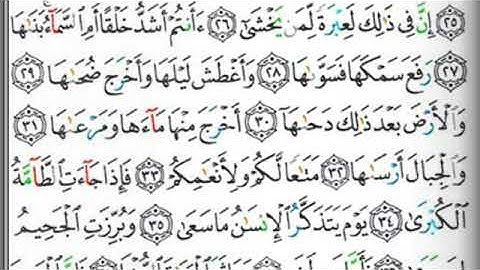 ٢٥ إِنَّ فِى ذَٰلِكَ لَعِبْرَةً لِّمَن يَخْشَىٰٓ ٢٦ ءَأَنتُمْ أَشَدُّ خَلْقًا أَمِ ٱلسَّمَآءُ بَنَىٰهَا
٢٧ رَفَعَ سَمْكَهَا فَسَوَّىٰهَا ٢٨ وَأَغْطَشَ لَيْلَهَا وَأَخْرَجَ ضُحَىٰهَا ٢٩
وَٱلْأَرْضَ بَعْدَ ذَٰلِكَ دَحَىٰهَآ ٣٠ أَخْرَجَ مِنْهَا مَآءَهَا وَمَرْعَىٰهَا ٣١
وَٱلْجِبَالَ أَرْسَىٰهَا ٣٢ مَتَٰعًا لَّكُمْ وَلِأَنْعَٰمِكُمْ ٣٣ فَإِذَا جَآءَتِ ٱلطَّآمَّةُ
ٱلْكُبْرَىٰ ٣٤ يَوْمَ يَتَذَكَّرُ ٱلْإِنسَٰنُ مَا سَعَىٰ ٣٥ وَبُرِّزَتِ ٱلْجَحِيمُ